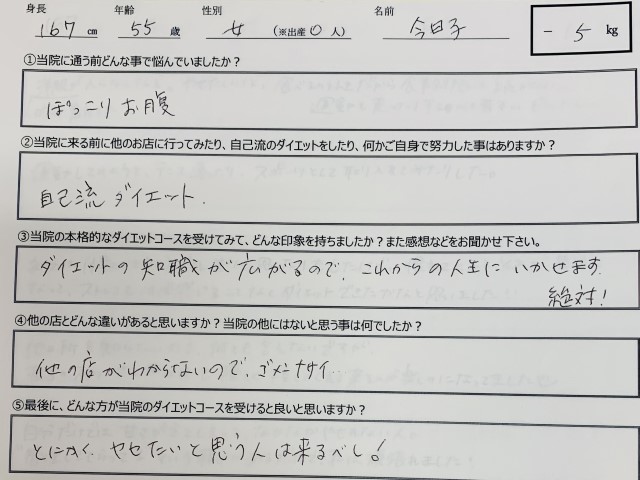 身長 年齢 性別 名前
167 cm 55 歳 女 (※出産 0 人) 今日子 － 5 kg
①当院に通う前どんな事で悩んでいましたか？
ぽっこりお腹
②当院に来る前に他のお店に行ってみたり、自己流のダイエットをしたり、何かご自身で努力した事はありますか？
自己流ダイエット.
③当院の本格的なダイエットコースを受けてみて、どんな印象を持ちましたか？また感想などをお聞かせ下さい。
ダイエットの知職が広がるので、これからの人生にいかせます.
絶対!
④他の店とどんな違いがあると思いますか？当院の他にはないと思う事は何でしたか？
他の店がわからないので、ゴメーナサイ.
⑤最後に、どんな方が当院のダイエットコースを受けると良いと思いますか？
とにかく、ヤセたいと思う人は来るべし!